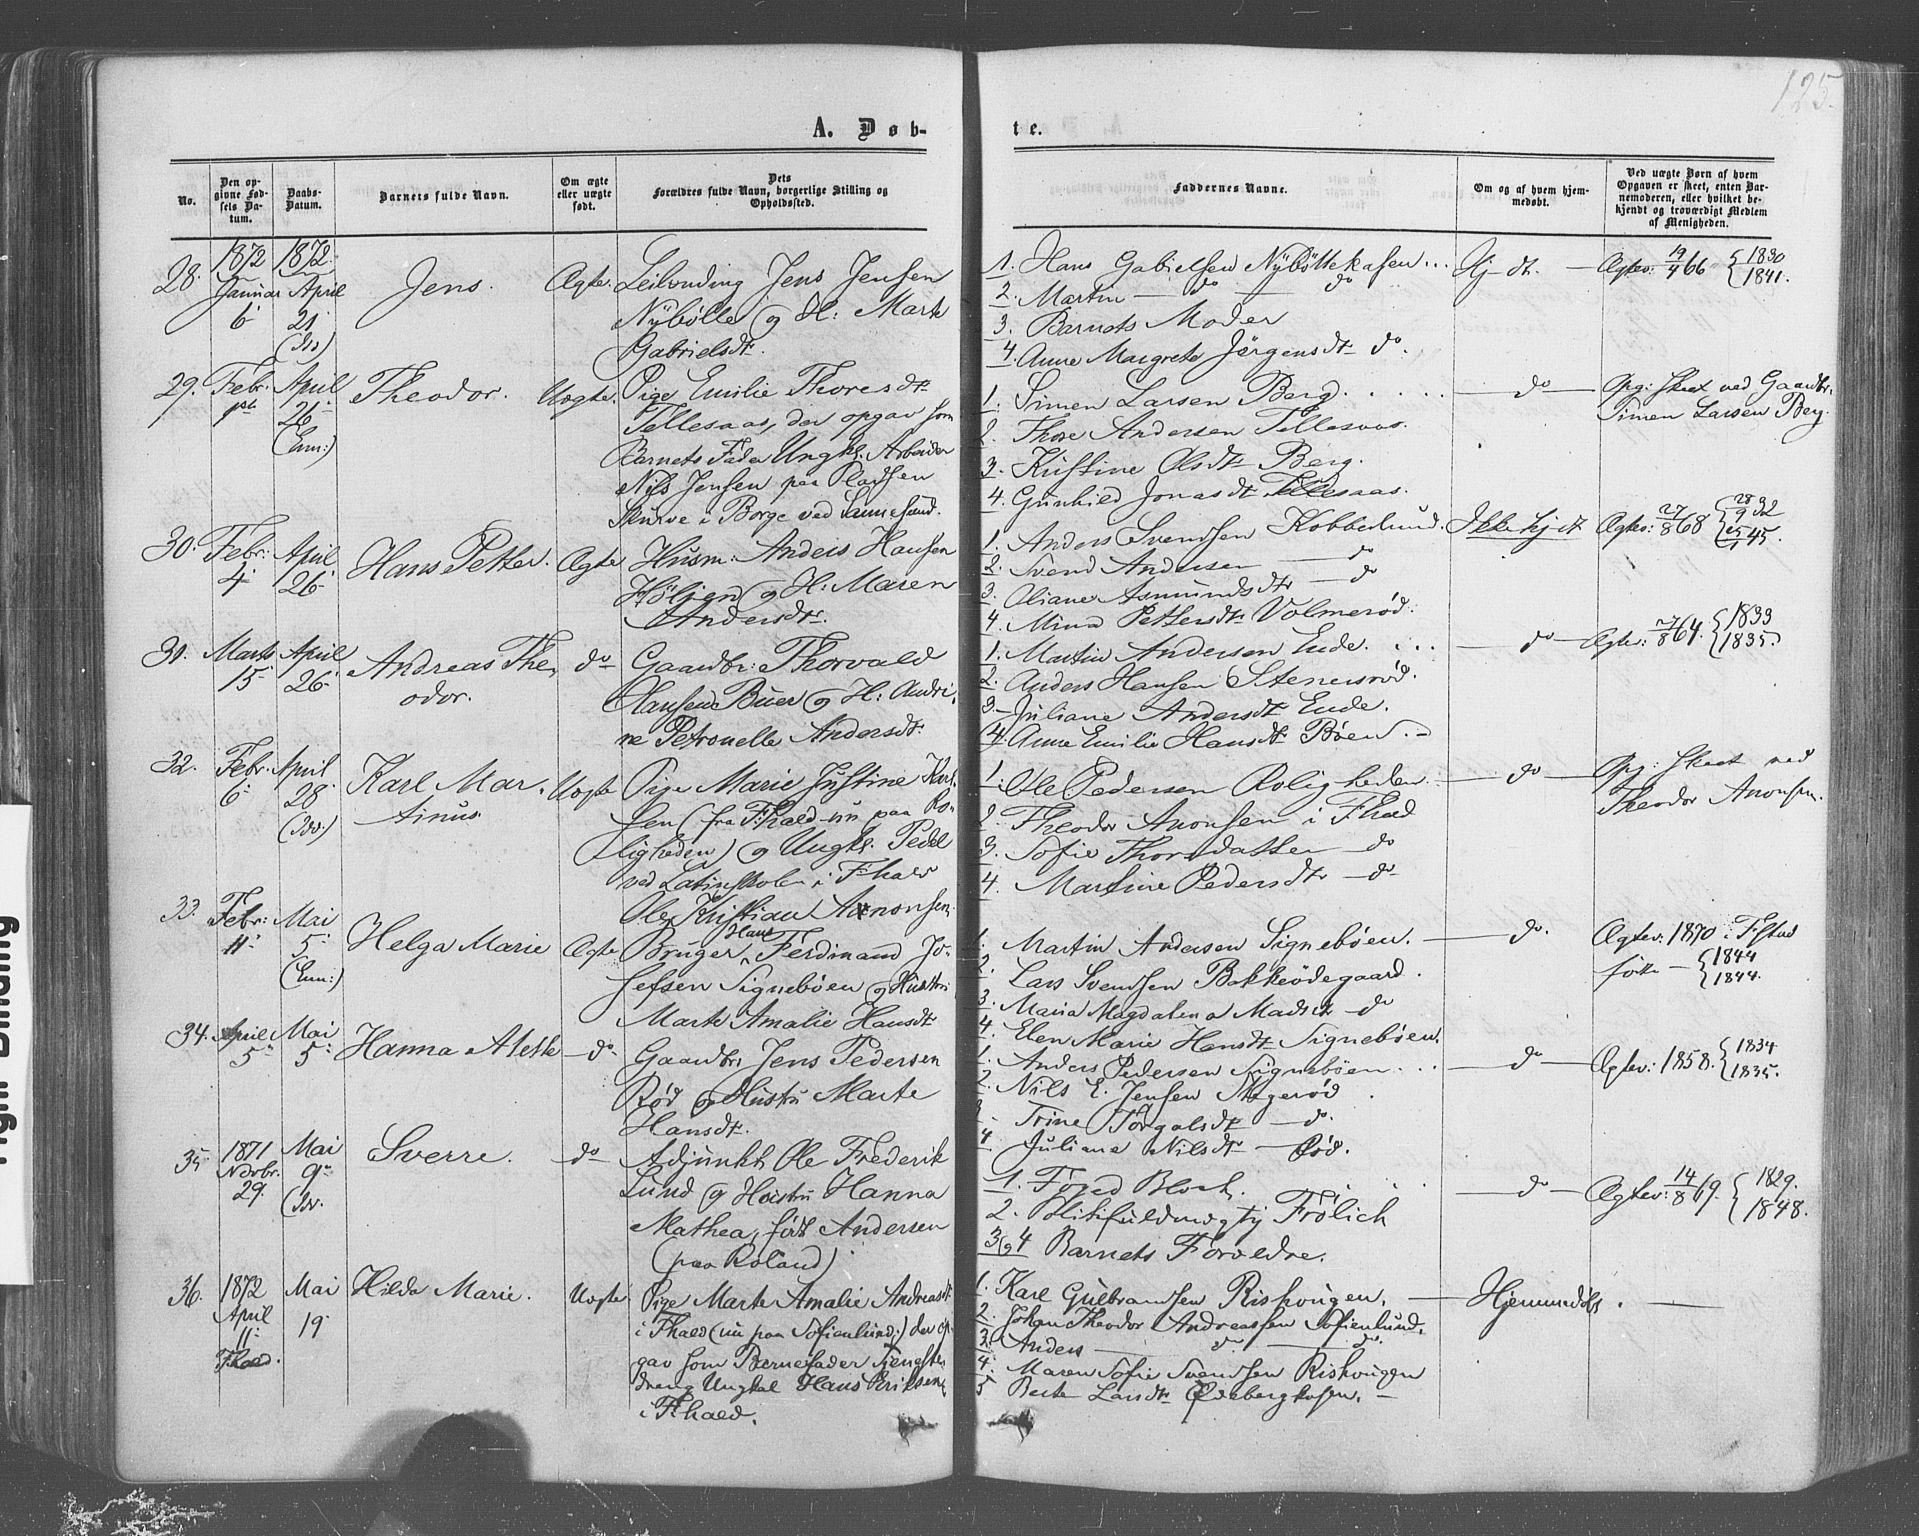 125.
A. Døb-
te.
No.
Den op-
givne Fød-
sels Da-
tum.
Daabs-
Datum.
Barnets fulde Navn.
Om ægte
eller uægte
født.
Dets
Forældres fulde Navn, borgerlige Stilling og
Opholdssted.
Faddernes Navne.
Om og af hvem hjem-
medøbt.
Ved uægte Børn af hvem
Opgaven er skeet, enten Bar-
nemoderen, eller hvilket be-
kjendt og troværdigt Medlem
af Menigheden.
28.
1872
Januar
6
1872.
April
21
Jens.
Ægte.
Leilending Jens Jensen
Nybølle og H: Marte
Gabrielsdt.
1. Hans Gabrielsen Nybøllekasen...
2. Martin — do — do
3. Barnets Moder
4. Anne Margrete Jørgensdt. do.
Hj dt. —
Ægtev: 19/4 66 {1830 1841.
29.
Febr:
April
26
(Enn:)
Theodor.
Uægte.
Pige Emilie Thoresdt.
Tellesaas, der opgav som
Barnets Fader Ungkl. Arbeider
Nils Jensen paa Pladsen
Skurve i Borge ved Sannesund.
1. Simen Larsen Berg.
2. Thore Andersen Tellesaas.
3. Kristine Olsdt. Berg.
4. Gunhild Jonasdt. Tellesaas.
— do —
Opg: skeet ved Gaardbr.
Simen Larsen Berg.
30.
Febr:
4
April
26
Hans Petter.
Ægte
Husm: Anders Hansen
Høljen og H: Maren
Andersdt.
1. Anders Svendsen Kobberlund.
2. Svend Andersen — do
3. Oliane Asmundsdt. — do
4. Mina Pettersdt. Volmerød.
Ikke hj dt
Ægtev: 27/8 68 {28/9 32 25/1 45.
31.
Marts
15
April
26
Andreas The-
odor.
do
Gaardbr: Thorvald
Hansen Buer og H: Andri-
ne Petronelle Andersdt.
1. Martin Andersen Ende. ...
2. Anders Hansen Stenersrød.
3. Juliane Andersdt. Ende.
4. Anne Emilie Hansdt. Bøen. —
— do —
Ægtev: 27/8 64. {1833 1835.
32.
Febr.
6
April
28
Karl Mar-
tinus
Uægte
Pige Marie Justine Karl-
sen (fra Fhald nu paa Ro-
ligheden) og Ungkl. Pedel
ved Latinskolen i Fhald
Ole Kristian Aronsen
1. Ole Pedersen Roligheden.
2. Theodor Aronsen i Fhald
3. Sofie Thorsdatter — do
4. Martine Pedersdt. — do
— do
Opg: skeet ved
Theodor Aronsen.
33.
Febr:
11
Mai
5
(Enn:)
Helga Marie
Ægte
Bruger Hans Ferdinand Jo-
sefsen Signebøen og Hustru
Marte Amalie Hansdt
1. Martin Andersen Signebøen.
2. Lars Svendsen Bakkeødegaard.
3. Maria Magdalena Madsdt. — do
4. Elen Marie Hansdt. Signebøen.
— do.
Ægtev: 1870 i Fstad
— {1844 1844.
34.
April
5
Mai
5
Hanna Alette
— do —
Gaardbr. Jens Pedersen
Rød og Hustru Marte
Hansdt.
1. Anders Pedersen Signebøen ...
2. Nils E. Jensen
3. Trine Torgalsdt. — do.
4. Juliane Nilsdt. — Rød.
— do —
Ægtev: 1858. {1834 1835.
35
1871
Novbr.
29.
Mai
9
Sverre.
— do
Adjunkt Ole Frederik
Lund og Hustru Hanna
Mathea, født Andersen
(paa Roland)
1. Foged Bloch.
2. Frølich
3 og 4 Barnets Forældre.
do —
Ægtev: 14/8 69. {1829. 1848.
36.
1872
April
11
Fhald.
Mai
19
Hilda Marie.
Uægte
Pige Marte Amalie Andreasdt.
i Fhald (nu paa Sofienlund:) der op-
gav som Barnefader Tjeneste-
dreng Ungkal Hans Eriksen
i Fhald.
1. Karl Gulbransen Riskougen.
2. Johan Theodor Andreassen Sofienlund.
3. Anders — do — do.
4. Maren Sofie Svendsen Riskougen
5 Berte Larsdt.
Hjemmedøbt.